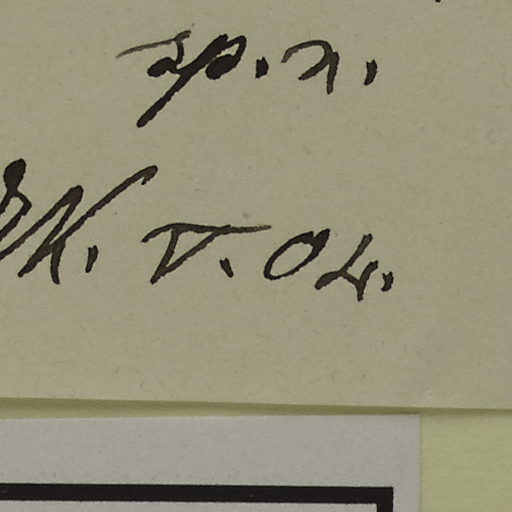 sp. n.
K. V. 04.